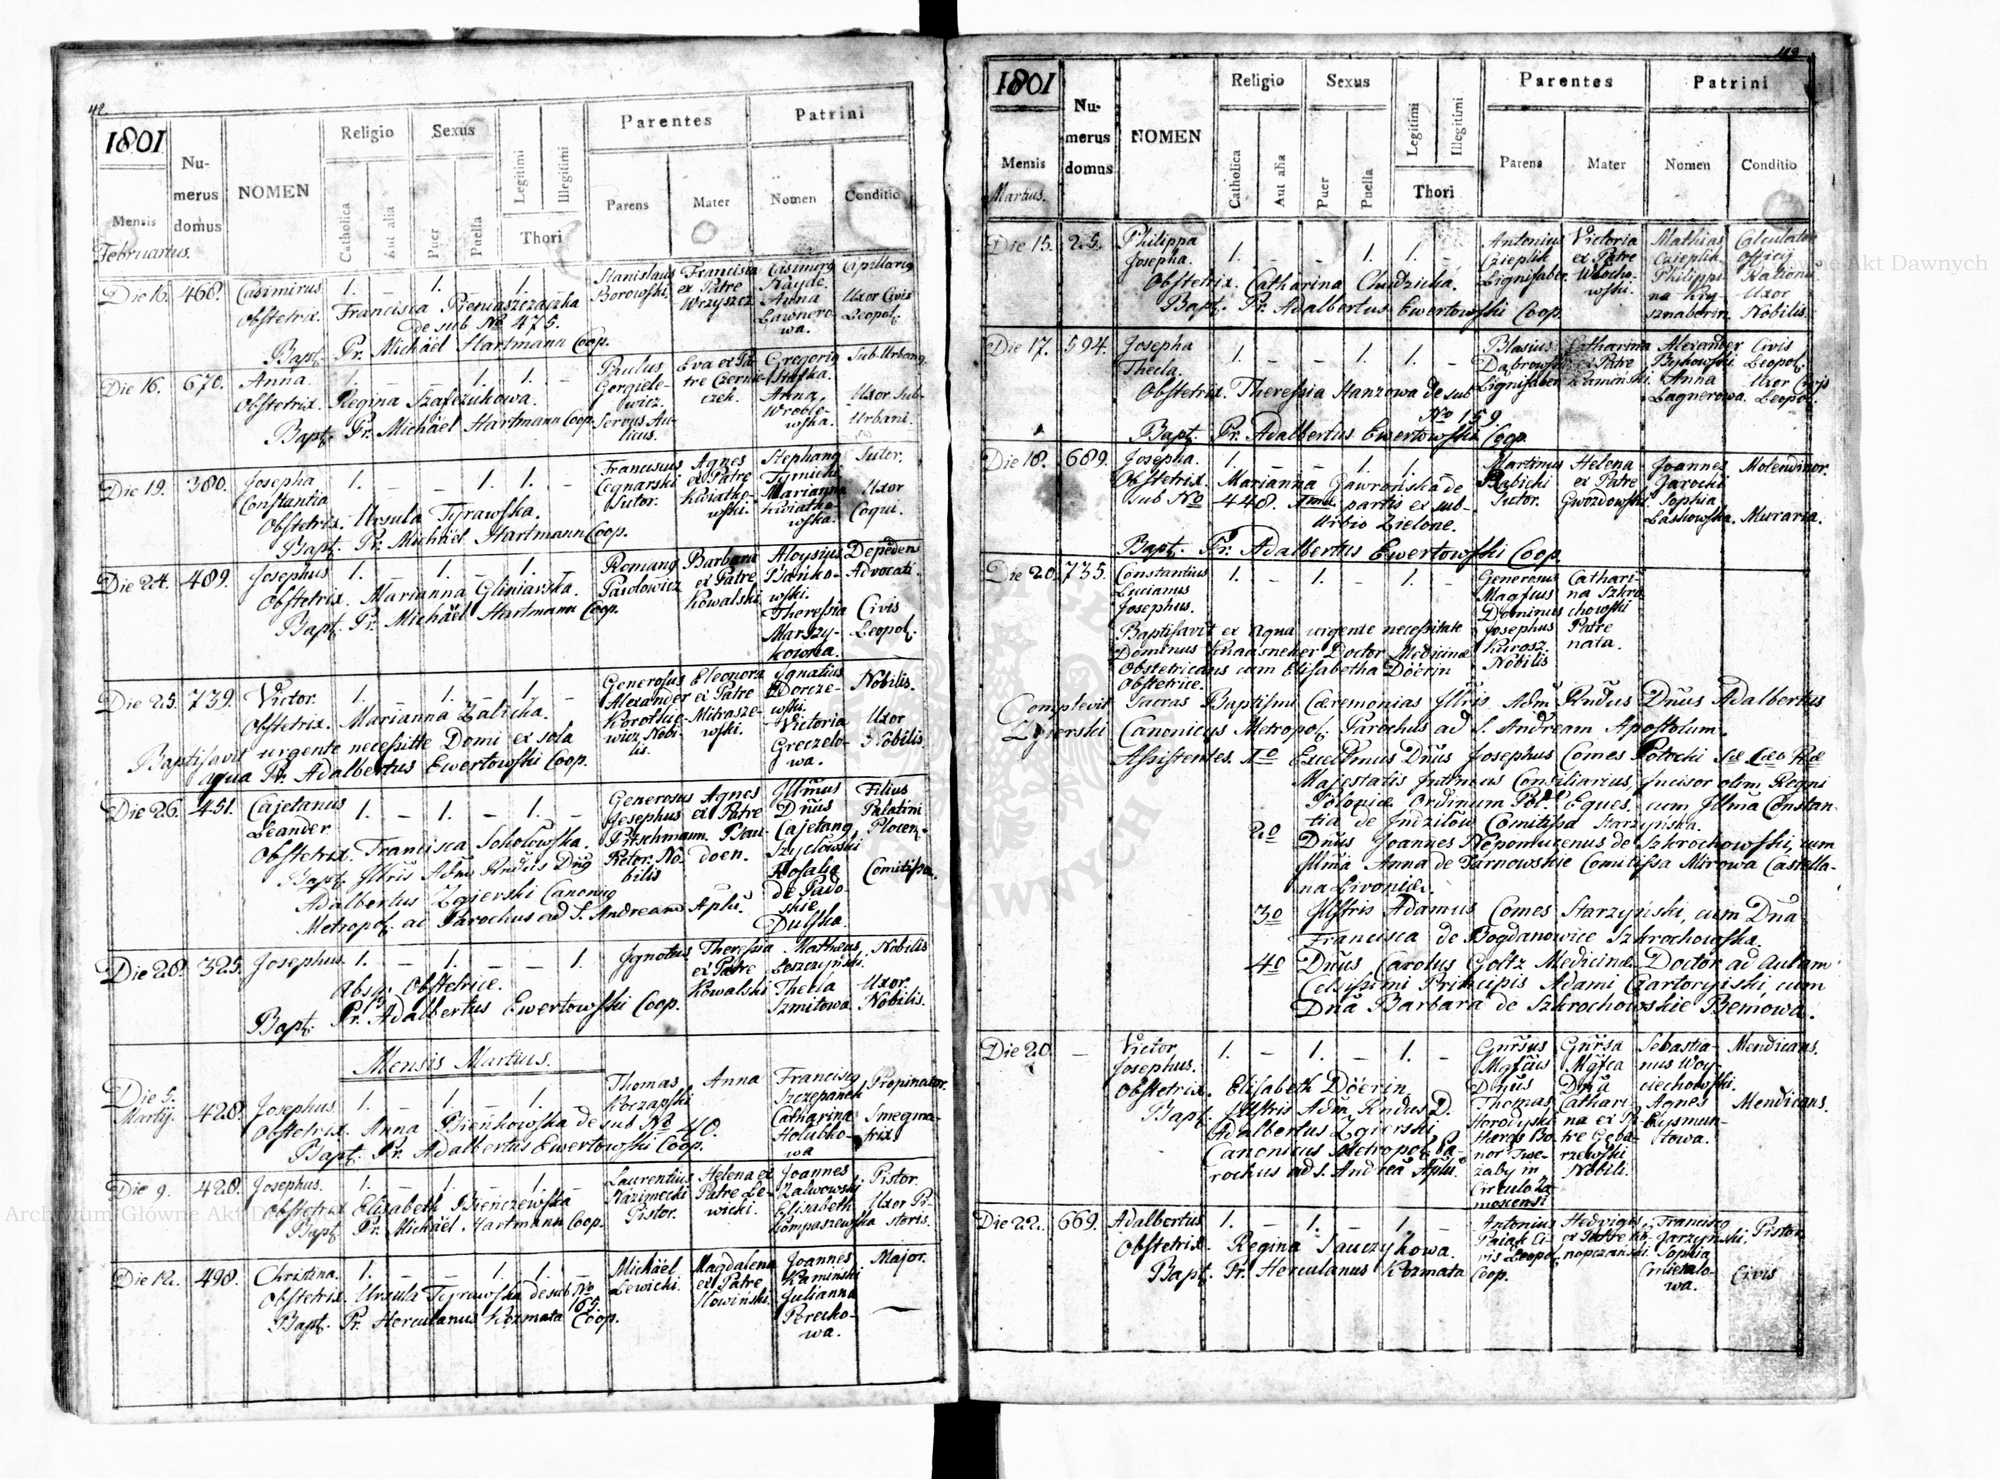 42
1801
Mensis
Februarius.
Numerus
domus
NOMEN
Religio
Catholica
Aut alia
Sexus
Puer
Puella
Legitimi
Illegitimi
Thori
Parentes
Parens
Mater
Patrini
Nomen
Conditio
Die 16. 468. Casimirus 1. 1. 1.
Obstetrix. Francisca Pieniaszczaczka
de sub No 475.
Bapt. Pr. Michäel Hartmann Coop.
Stanislaus
Borowski.
Francisca
ex Patre
Wrzyszcz
Casimirg
Anna
Lawnero-
wa.
Uxor Civis
Leopol.
Die 16. 670. Anna. 1. – – 1. 1. –
Obstetrix. Regina Szafczukowa.
Bapt. Pr. Michäel Hartmann Coop.
Paulus
Gorgiele-
wicz.
Servus Au-
licus.
Eva ex Pa-
tre Czernie-
czek.
Gregorig
Anna
Wroble-
wska.
Sub Urbang.
Uxor Sub-
Urbani.
Die 19. 380. Josepha 1. – – 1. 1. –
Constantia
Obstetrix. Ursula Tyrawska.
Bapt. Pr. Michäel Hartmann Coop.
Franciscus
Cegnarski
Sutor.
Agnes
ex Patre
Kwiatko-
wski.
Stephang
Tymicki
Marianna
Kwiatko-
wska.
Sutor.
Uxor
Coqui.
Die 24. 489. Josephus 1. – 1. – 1. –
Obstetrix. Marianna Gliniarska.
Bapt. Pr. Michäel Hartmann Coop.
Romang
Pawlowicz
Barbara
ex Patre
Kowalski
Aloysius
Bańko-
wski.
Theressia
Martzy-
kowna.
Depeden
Advocati.
Civis
Leopol.
Die 25. 739. Victor. 1. – 1. – 1. –
Obstetrix. Marianna Zalicha.
Baptisavit urgente necessitte Domi ex sola
aqua Pr. Adalbertus Ewertowski Coop.
Generosus
Alexander
Korotkie-
wicz Nobi-
lis.
Eleonora
ex Patre
Mitrasze-
wski.
Ignatius
Dorcze-
wski.
Victoria
Greczelo-
wa.
Nobilis.
Uxor
Nobilis
Die 26. 451. Cajetanus 1. – 1. – 1. –
Leander
Obstetrix. Francisca Sokolowska.
Bapt. Illris Adm Rndus Dng
Adalbertus Zgierski Canonicg
Metropol. ac Parochus ad S. Andream Aplu.
Generosus
Josephus
Pitschmann
Pictor. No-
bilis
Agnes
ex Patre
Bau-
doen.
Illmus
Dnus
Cajetang
Szydlowski
Rosalia
de Pado
skie
Dulska.
Filius
Palatini
Plocen.
Comitissa.
Die 28. 325. Josephus. 1. – 1. – – 1.
Absq Obstetrice.
Bapt. Pr. Adalbertus Ewertowski Coop.
Ignotus
Theressia
ex Patre
Kowalski
Matheus
Leszczyński.
Thecla
Szmitowa.
Nobilis
Uxor
Nobilis.
Mensis Martius.
Die 5.
Martij. 428. Josephus. 1. – 1. – 1. –
Obstetrix. Anna Bieńkowska de sub No 40.
Bapt. Pr. Adalbertus Ewertowski Coop.
Thomas
Korzapski
Anna
Franciscg
Szczepanek
Catharina
Holubko-
wa
Propinator.
Smegma-
trix
Die 9. 428. Josephus. 1. – 1. – 1. –
Obstetrix Elisabeth Bienczewska
Bapt. Pr. Michäel Hartmann Coop.
Laurentius
Kazimecki
Pistor.
Helena ex
Patre Le-
wicki.
Joannes
Zalwowski
Elisabeth
Kompanewska
Pistor.
Uxor Pi-
storis.
Die 12. 498. Christina. 1. – – 1. 1. –
Obstetrix. Ursula Tyrawska de sub No
165.
Bapt. Pr. Herculanus Kozmata Coop.
Michäel
Lewicki.
Magdalena
ex Patre
Slowiński.
Joannes
Kaminski
Julianna
Perecko-
wa.
Major.
1801
Mensis
Martius.
Numerus
domus
NOMEN
Religio
Catholica
Aut alia
Sexus
Puer
Puella
Legitimi
Illegitimi
Thori
Parentes
Parens
Mater
Patrini
Nomen
Conditio
Die 15. 25. Philippa 1. – – 1. 1. –
Josepha.
Obstetrix. Catharina Chudzicka.
Bapt. Pr. Adalbertus Ewertowski Coop.
Antonius
Czieplik
Lignifaber
Victoria
ex Patre
Wlocho-
wski.
Mathias
Czieplik
Philippi-
na Kry-
sznaberin
Calculator
Officij
Rationu
Uxor
Nobilis
Die 17. 594. Josepha 1. – – 1. 1. –
Thecla.
Obstetrix. Theressia Hanzowa de sub
No 159.
Bapt. Pr. Adalbertus Ewertowski Coop.
Blasius
Dąbrowski
Lignifaber
Catharina
ex Patre
Kaminski.
Alexander
Bykowski.
Anna
Lagnerowa.
Civis
Leopol.
Uxor Civis
Leopol.
Die 18. 689. Josepha. 1. – – 1. 1. –
Obstetrix. Marianna Gawrońska de
sub No 448. partis ex sub-
urbio Zielone.
Bapt. Pr. Adalbertus Ewertowski Coop.
Martinus
Babicki
Sutor.
Helena
ex Patre
Gwozdowski
Joannes
Jarocki
Sophia
Laskowska.
Molendinor.
Muraria.
Die 20. 735. Constantius 1. – 1. – 1. –
Lucianus
Josephus.
Baptisavit ex Aqua urgente necessitate
Dominus Knaasneker Doctor Medicinæ
Obstetricans cum Elisabetha Döerin
Obstetrice.
Generosus
Magfcus
Dominus
Josephus
Kurosz.
Nobilis
Cathari-
na Szkro-
chowski
Patre
nata.
Complevit Sacras Baptismi Cæremonias Illris Adm Rndus Dnus Adalbertus
Zgierski Canonicus Metropol. Parochus ad S. Andream Apostolum.
Assistentes. 1o Excellmus Dnus Josephus Comes Potocki
Majestatis Intimus Consiliarius, Incisor olim Regni
Poloniæ Ordinum Pol. Eques, cum Illma Constan-
tia de Indzilow Comitissa Starzyńska.
2o Dnus Joannes Nepomucenus de Szkrochowski, cum
Illma Anna de Tarnowskie Comitissa Mirowa Castella-
na Livoniæ.
3o Illstris Adamus Comes Starzyński, cum Dna
Francisca de Bogdanowice Szkrochowska.
4o Dnus Carolus Goltz Medicinæ Doctor ad Aulam
Celsissimi Principis Adami Czartoryiski, cum
Dna Barbara de Szkrochowskie Bemowa.
Die 20. – Victor 1. – 1. – 1. –
Josephus.
Obstetrix. Elisabeth Döerin
Bapt. Illstris Adm. Rndus D.
Adalbertus Zgierski
Canonicus Metropol. Pa-
rochus ad S. Andrea Aplu.
Gnrsus
Mgfcus
Dnus
Thomas
Horodyski
Hæres Bo-
nor Twe-
zaby in
Circulo Za-
moscensi
Gnrsa
Mgfca
Dna
Cathari-
na ex Pa-
tre Goba-
rzewski
Nobili.
Sebastia-
nus Woy-
ciechowski.
Agnes
Zysmun-
towa.
Mendicans.
Mendicans.
Die 22. 669. Adalbertus 1. – 1. – 1. –
Obstetrix. Regina Sauczykowa.
Bapt. Pr. Herculanus Kozmata Coop.
Antonius
Paiak Ci-
vis Leopol.
Hedvigis
ex Patre Ko-
nopczański.
Franciscg
Garzyński,
Sophia
wa.
Pistor
Civis
Archiwum Główne Akt Dawnych